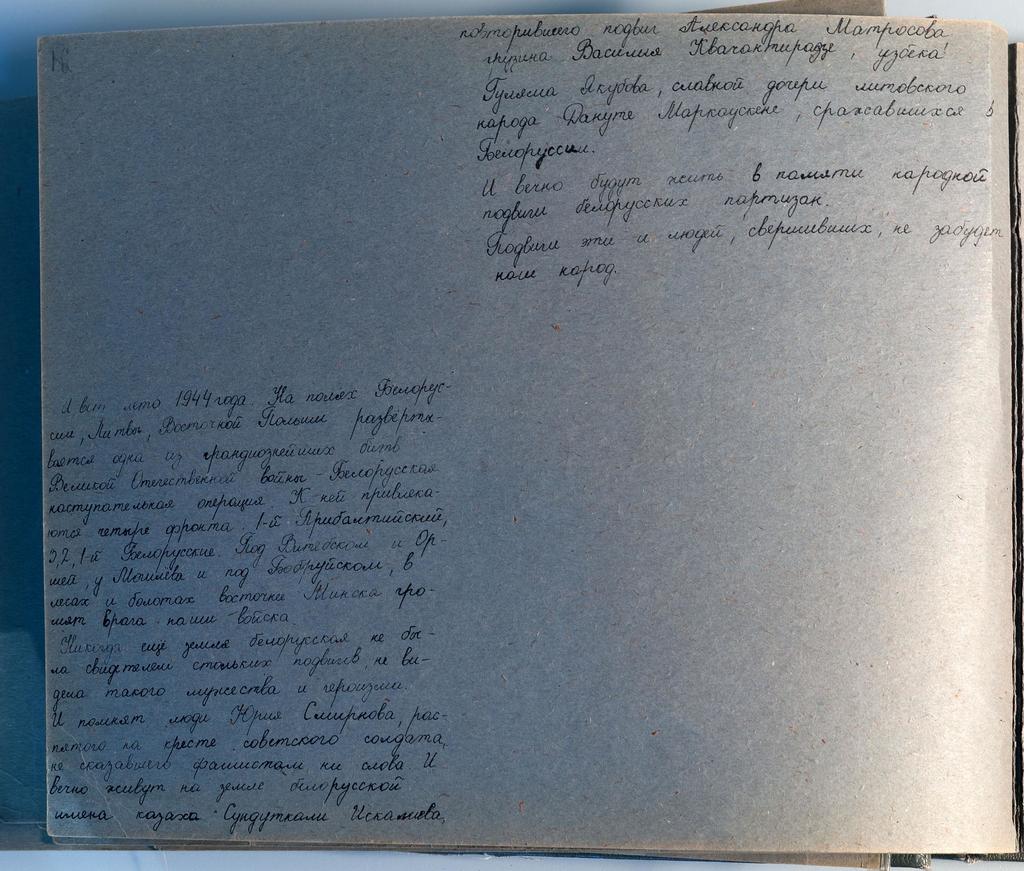 А вот лето 1944 года. На полях Белорус-
сии, Литвы, Восточной Польши развёрты-
вается одна из грандиознейших битв
Великой Отечественной войны - Белорусская
наступательная операция. К ней привлека-
ются четыре фронта: 1-й Прибалтийский,
3,2,1-й Белорусские. Под Витебском и Ор-
шей, у Могилёва и под Бобруйском, в
лесах и болотах восточнее Минска гро-
мят врага наши войска.
Никогда ещё земля белорусская не бы-
ла свидетелем стольких подвигов, не ви-
дела такого мужества и героизма.
И помнят люди Юрия Смирнова, рас-
пятого на кресте советского солдата,
не сказавшего фашистам ни слова. И
вечно живут на земле белорусской
имена казаха Сундуткали Искалиева,
повторившего подвиг Александра Матросова
грузина Василия Квачантирадзе, узбека
Гуляма Якубова, славной дочери литовского
народа Дануте Маркаускене, сражавшихся в
Белоруссии.
И вечно будут жить в памяти народной
подвиги белорусских партизан.
Подвиги эти и людей, свершивших, не забудет
наш народ.